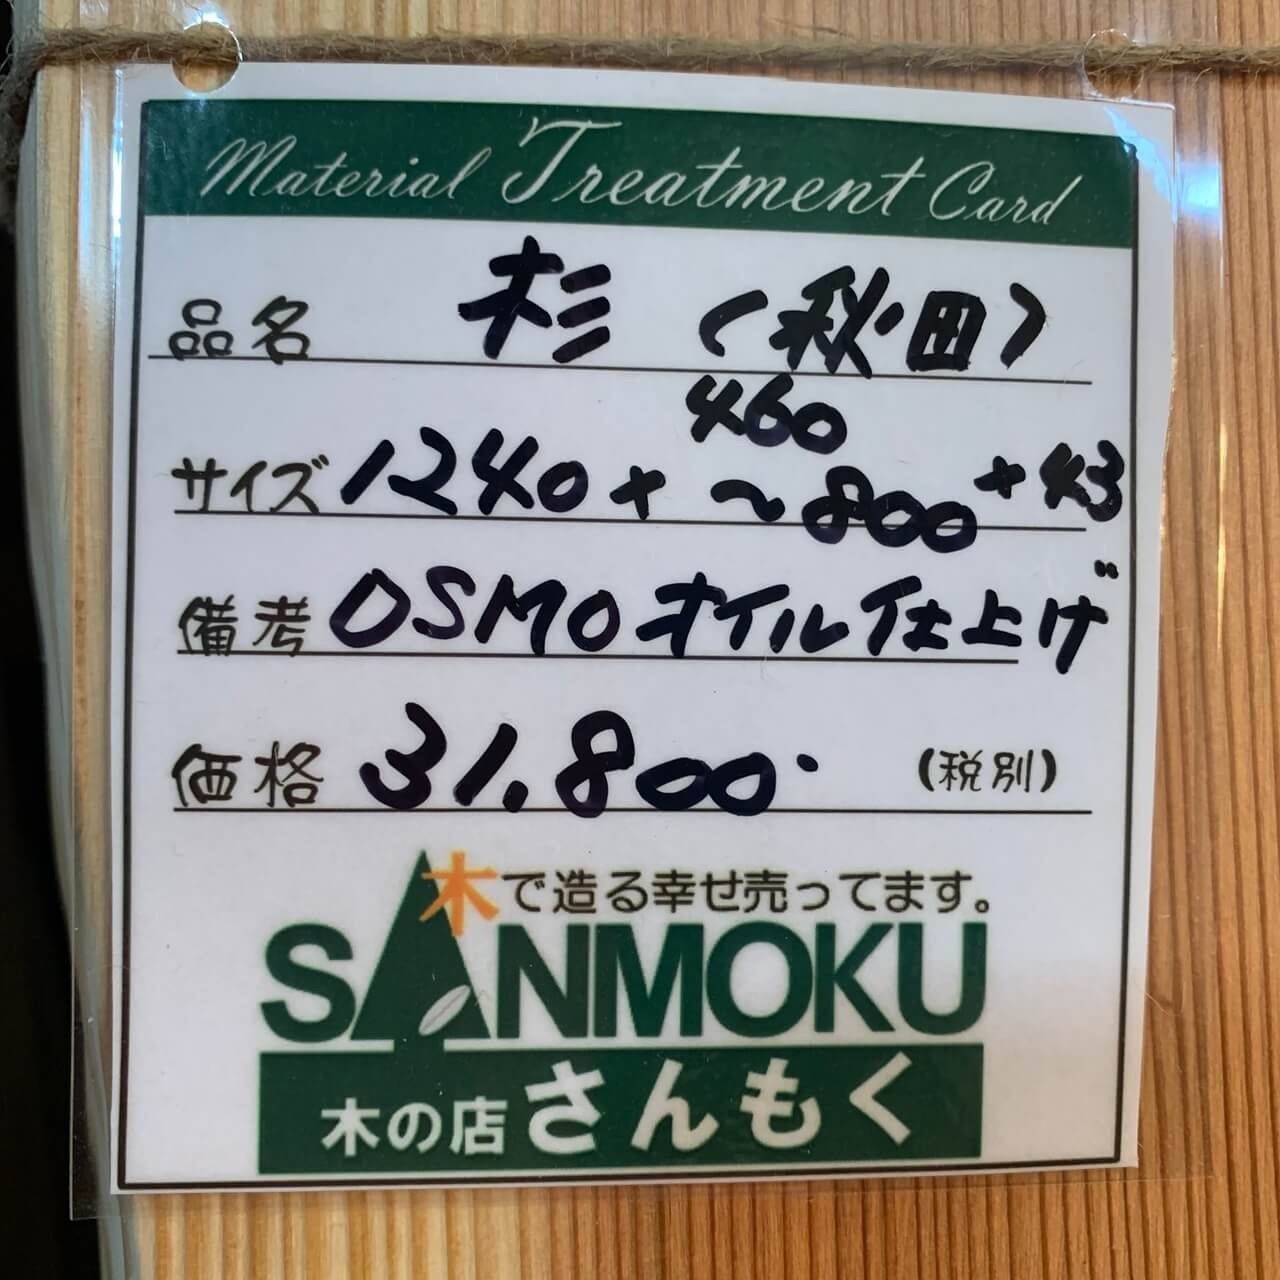 Material Treatment Card
品名 杉 (秋田)
460
サイズ 1240 × ~800 × 43
備考 OSMOオイル仕上げ
価格 31,800. (税別)
木で造る幸せ売ってます。
SANMOKU
木の店さんもく